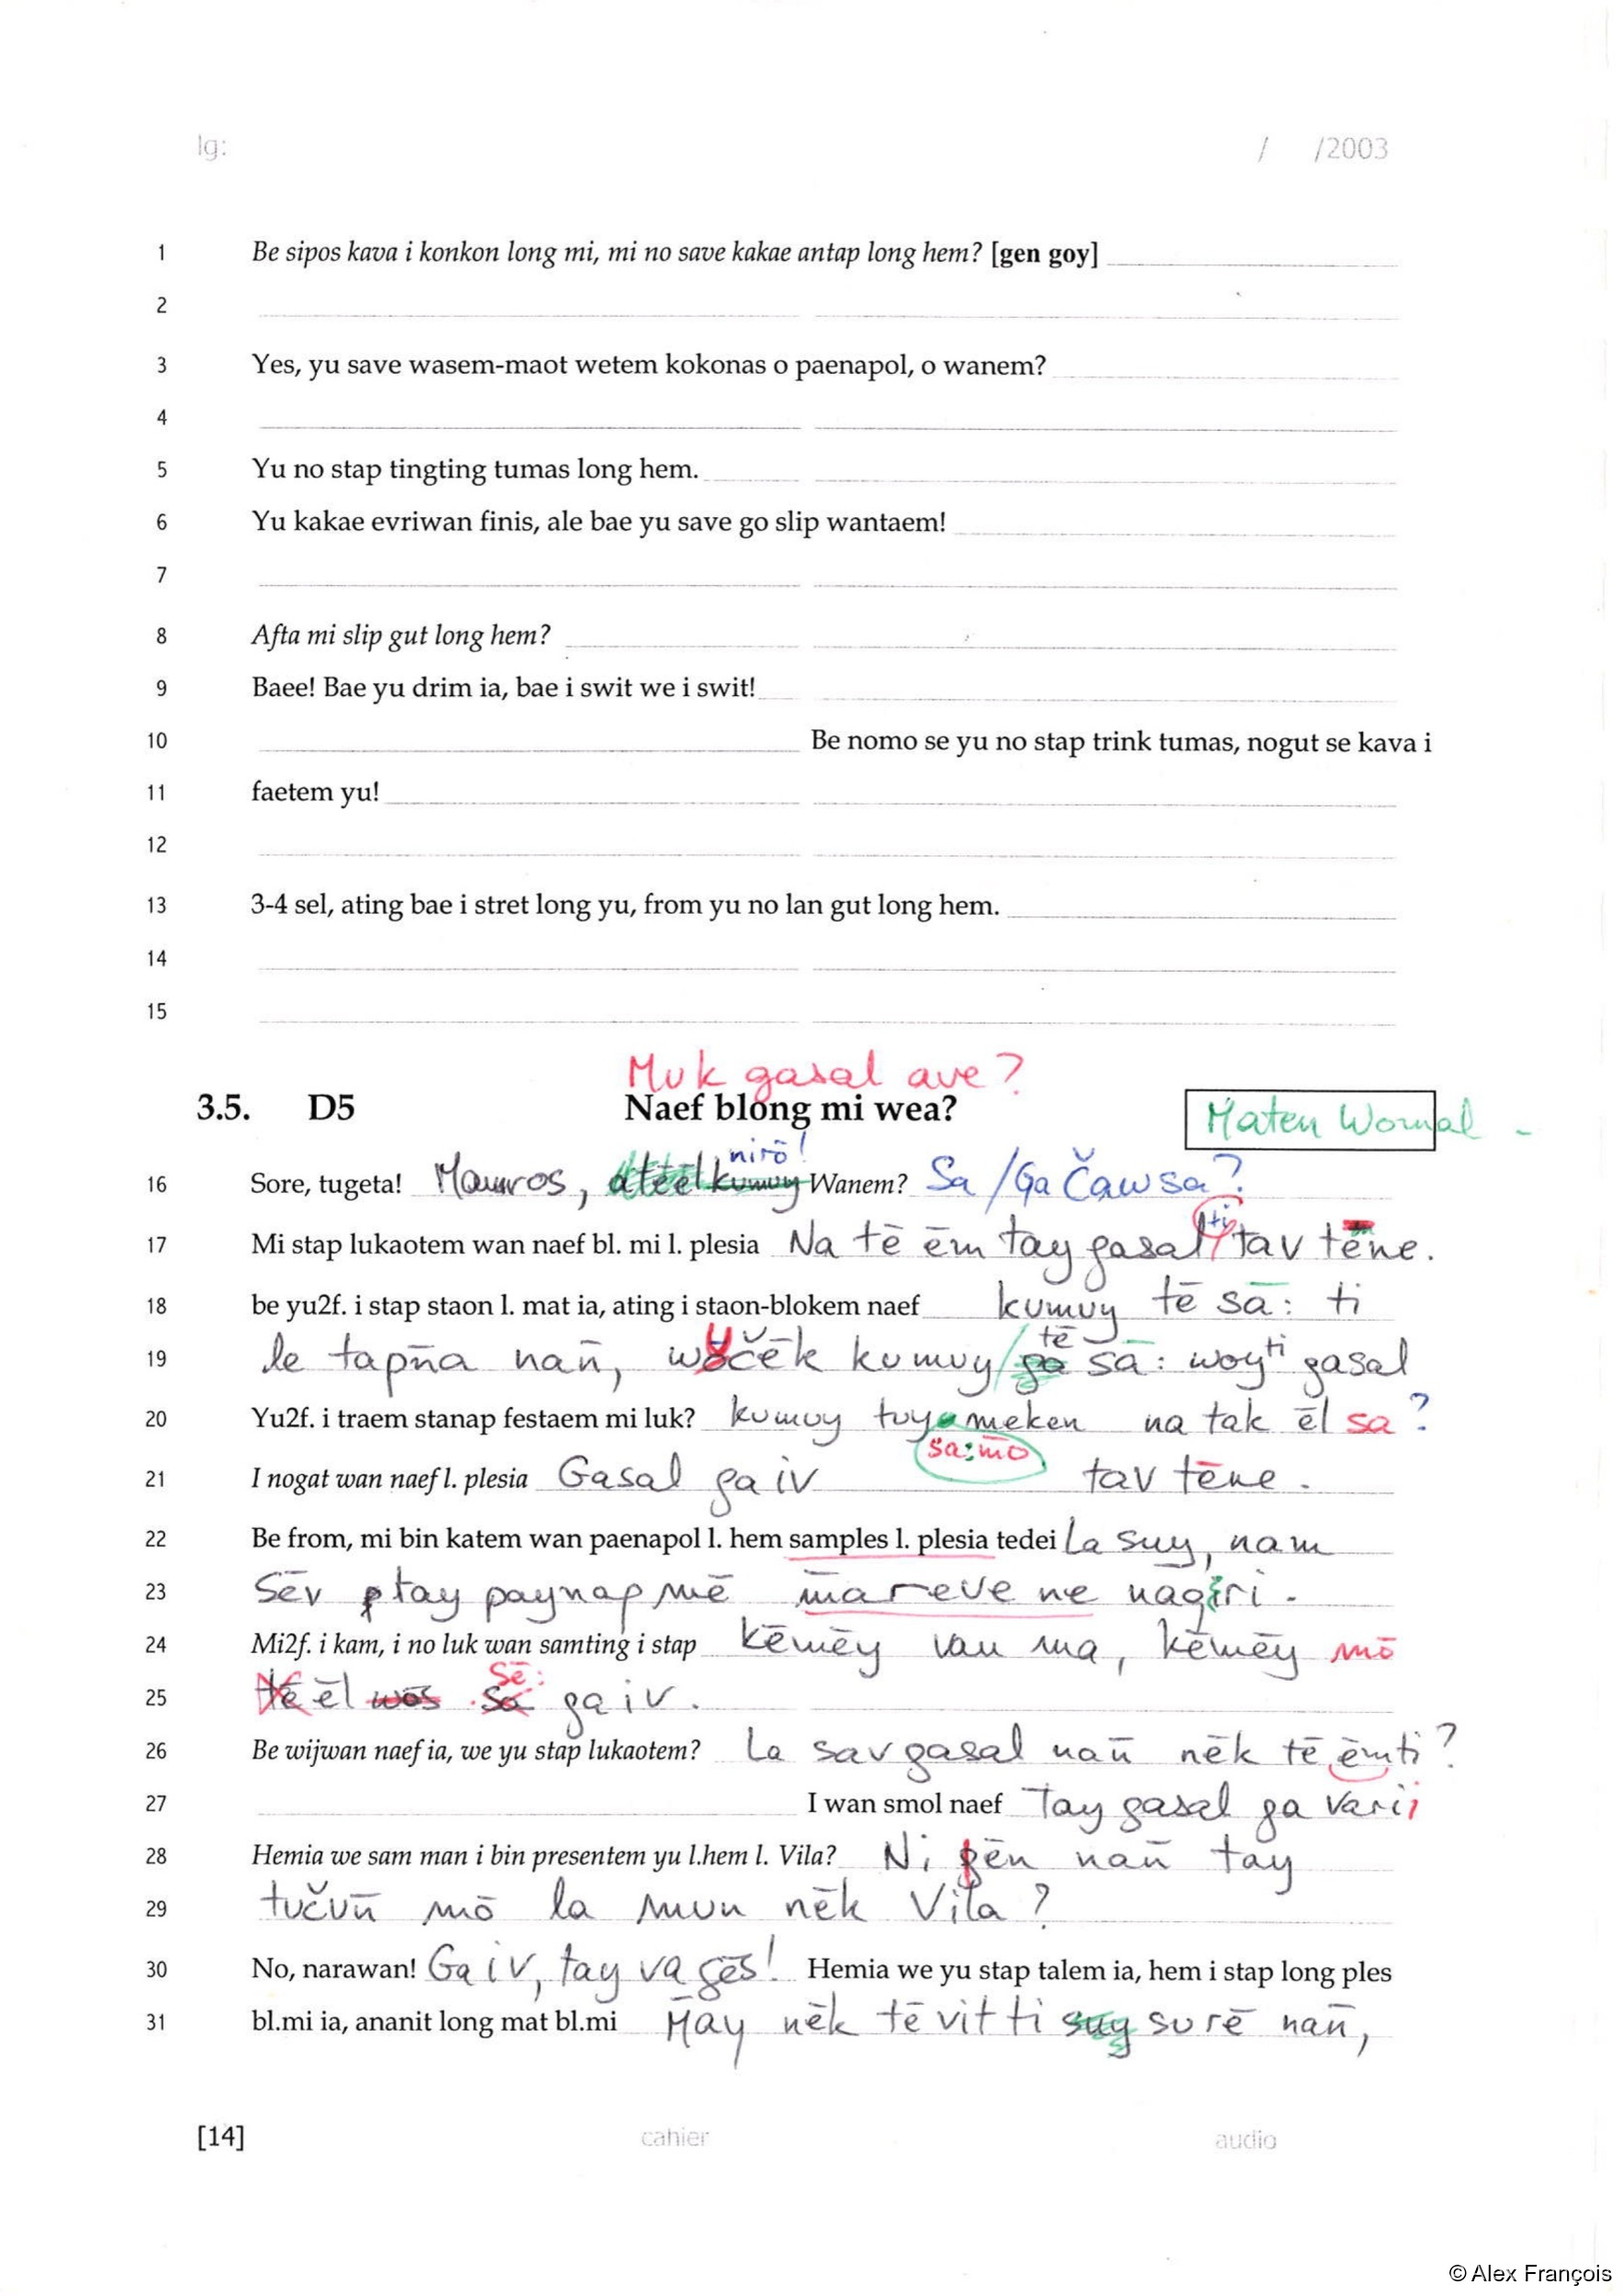 lg: / /2003
1 Be sipos kava i konkon long mi, mi no save kakae antap long hem? [gen goy]
2
3 Yes, yu save wasem-maot wetem kokonas o paenapol, o wanem?
4
5 Yu no stap tingting tumas long hem.
6 Yu kakae evriwan finis, ale bae yu save go slip wantaem!
7
8 Afta mi slip gut long hem?
9 Baee! Bae yu drim ia, bae i swit we i swit!
10 Be nomo se yu no stap trink tumas, nogut se kava i
11 faetem yu!
12
13 3-4 sel, ating bae i stret long yu, from yu no lan gut long hem.
14
15
Muk gasal ave?
3.5. D5 Naef blong mi wea? Maten Womal
nirō!
16 Sore, tugeta! Wanem? Sa / Ga Čaw sa?
ti
17 Mi stap lukaotem wan naef bl. mi l. plesia Na tē ēm tay gasal tav tēne.
18 be yu2f. i stap staon l. mat ia, ating i staon-blokem naef kumuy tē sā: ti
tē
19 le tapn̄a nan̄, kumuy sā: woy ti gasal
20 Yu2f. i traem stanap festaem mi luk? kumuy tuy ameken na tak ēl sa?
sa: m̄o
21 I nogat wan naef l. plesia Gasal ga iv tav tēne.
22 Be from, mi bin katem wan paenapol l. hem samples l. plesia tedei La suy, nam
23 sēv tay paynap mē m̄areve ne nagiri.
24 Mi2f. i kam, i no luk wan samting i stap kēmēy van ma, kēmēy mō
Sē:
25 tē ēl wos sa ga iv.
26 Be wijwan naef ia, we yu stap lukaotem? La sav gasal nan̄ nēk tē ēm ti?
27 I wan smol naef Tay gasal ga varii
28 Hemia we sam man i bin presentem yu l.hem l. Vila? Ni nan̄ tay
29 tučun̄ mō la mun nēk Vila?
30 No, narawan! Ga iv, tay va gēs! Hemia we yu stap talem ia, hem i stap long ples
31 bl.mi ia, ananit long mat bl.mi M̄ay nēk tē vit ti surē nan̄,
[14] cahier audio
© Alex François